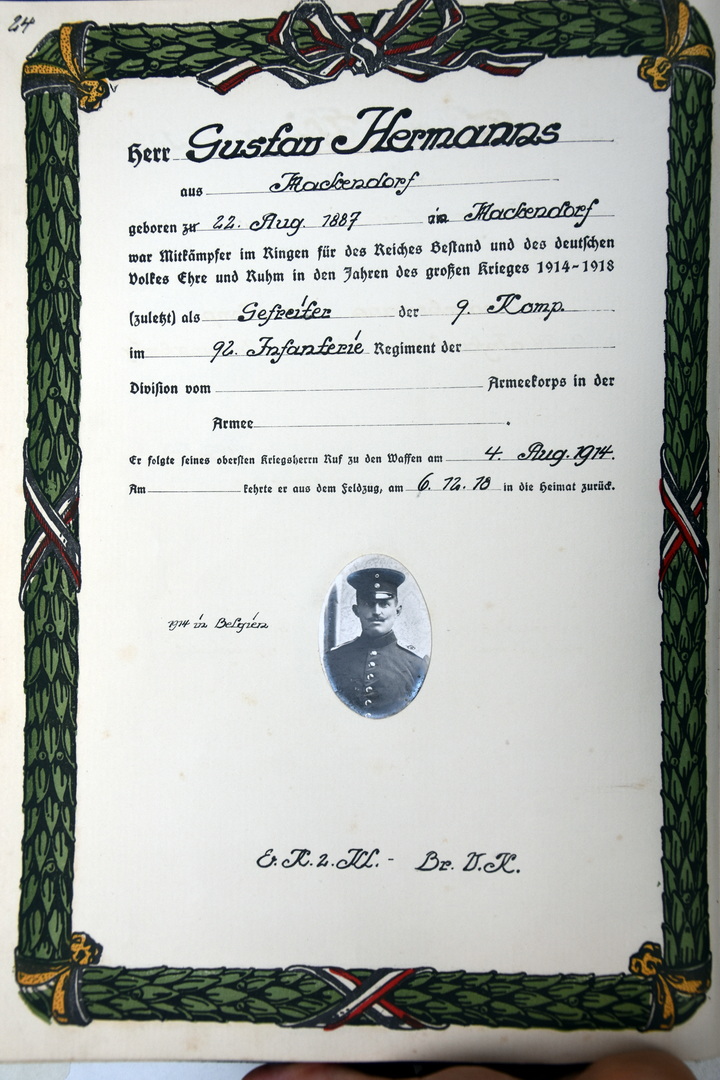 24
Herr Gustav Hermanns
aus Mackendorf
geboren zu 22. Aug. 1887 in Mackendorf
war Mitkämpfer im Ringen für des Reiches Bestand und des deutschen
Volkes Ehre und Ruhm in den Jahren des großen Krieges 1914-1918
(zuletzt) als Gefreiter der 9. Komp.
im 92. Infanterie Regiment der
Division vom Armeekorps in der
Armee .
Er folgte seines obersten Kriegsherrn Ruf zu den Waffen am 4. Aug. 1914.
Am kehrte er aus dem Feldzug, am 6. 12. 18 in die Heimat zurück.
1914 in Belgien
E. K. 2. Kl. - Br. V. K.